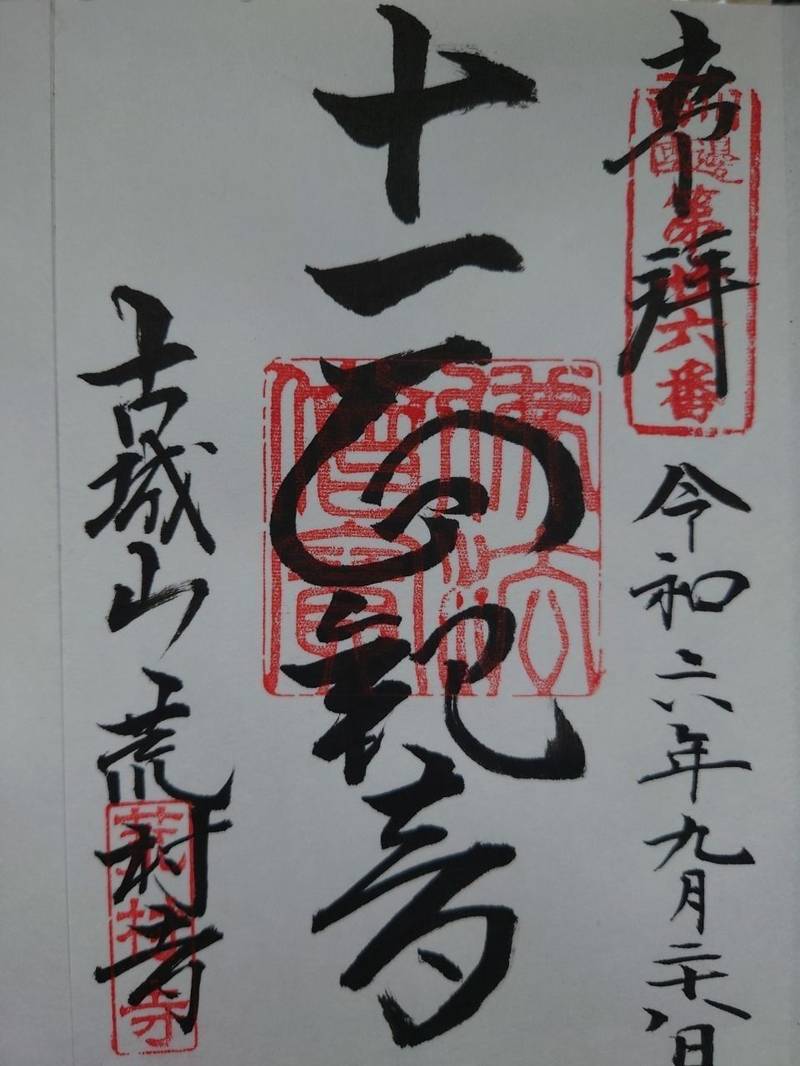 奉拝
第 六番
令和六年九月二十八日
十一面観音
佛法僧寶
古城山 荒村寺
荒村寺